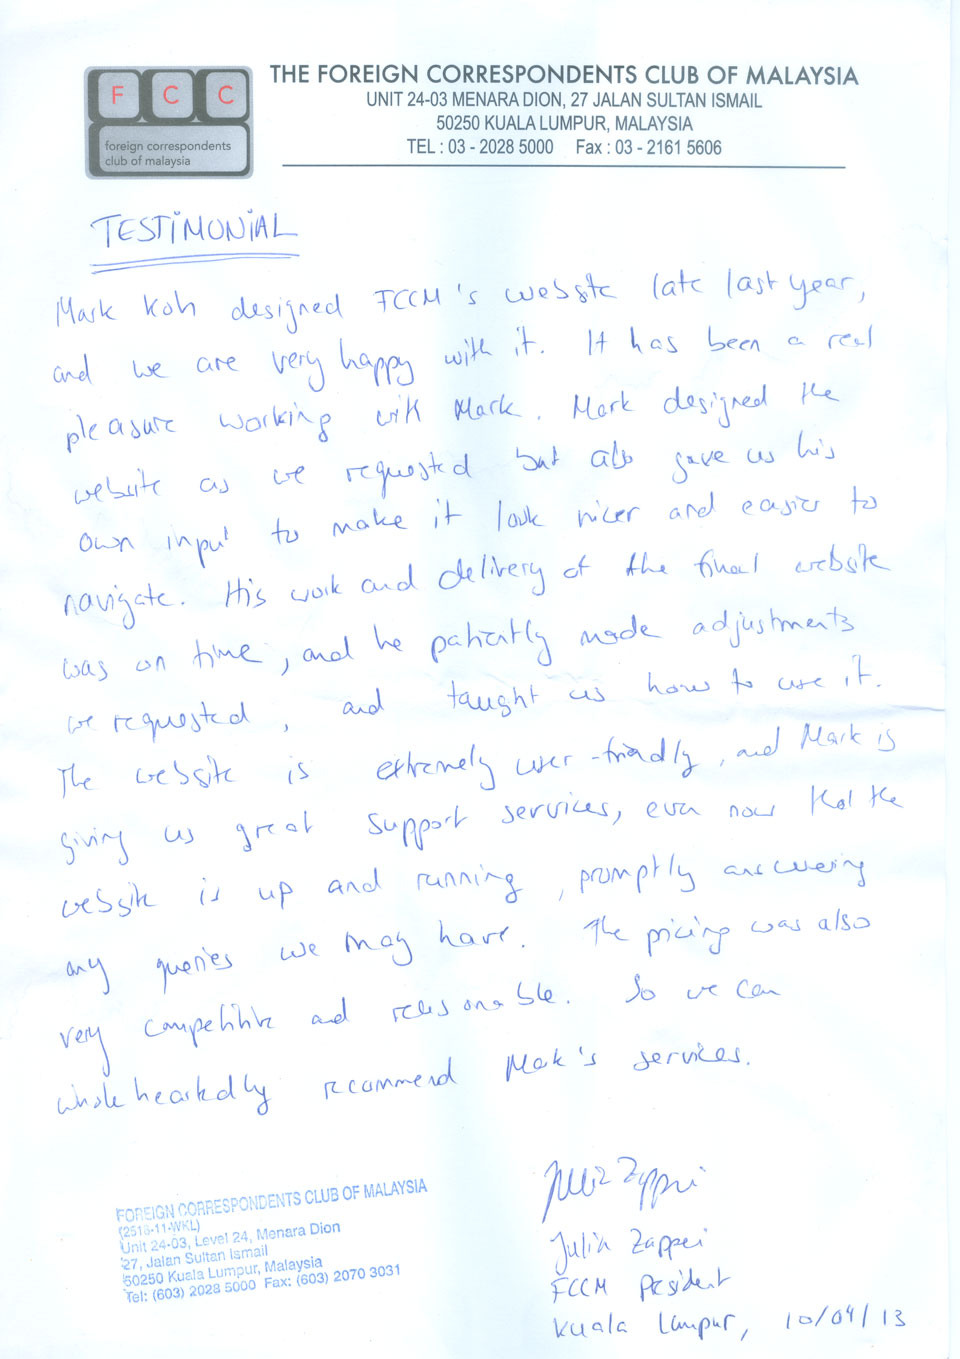 F C C
foreign correspondents
club of malaysia
THE FOREIGN CORRESPONDENTS CLUB OF MALAYSIA
UNIT 24-03 MENARA DION, 27 JALAN SULTAN ISMAIL
50250 KUALA LUMPUR, MALAYSIA
TEL : 03 - 2028 5000 Fax : 03 - 2161 5606
TESTIMONIAL
Mark Koh designed FCCM's website late last year,
and we are very happy with it. It has been a real
pleasure working with Mark. Mark designed the
website as we requested but also gave us his
own input to make it look nicer and easier to
navigate. His work and delivery of the final website
was on time, and he patiently made adjustments
we requested, and taught us how to use it.
The website is extremely user-friendly, and Mark is
giving us great support services, even now that the
website is up and running, promptly answering
any queries we may have. The pricing was also
very competitive and reasonable. So we can
wholeheartedly recommend Mark's services.
Julia Zappei
Julia Zappei
FCCM President
Kuala Lumpur, 10/04/13
FOREIGN CORRESPONDENTS CLUB OF MALAYSIA
(2518-11-WKL)
Unit 24-03, Level 24, Menara Dion
27, Jalan Sultan Ismail
50250 Kuala Lumpur, Malaysia
Tel: (603) 2028 5000 Fax: (603) 2070 3031